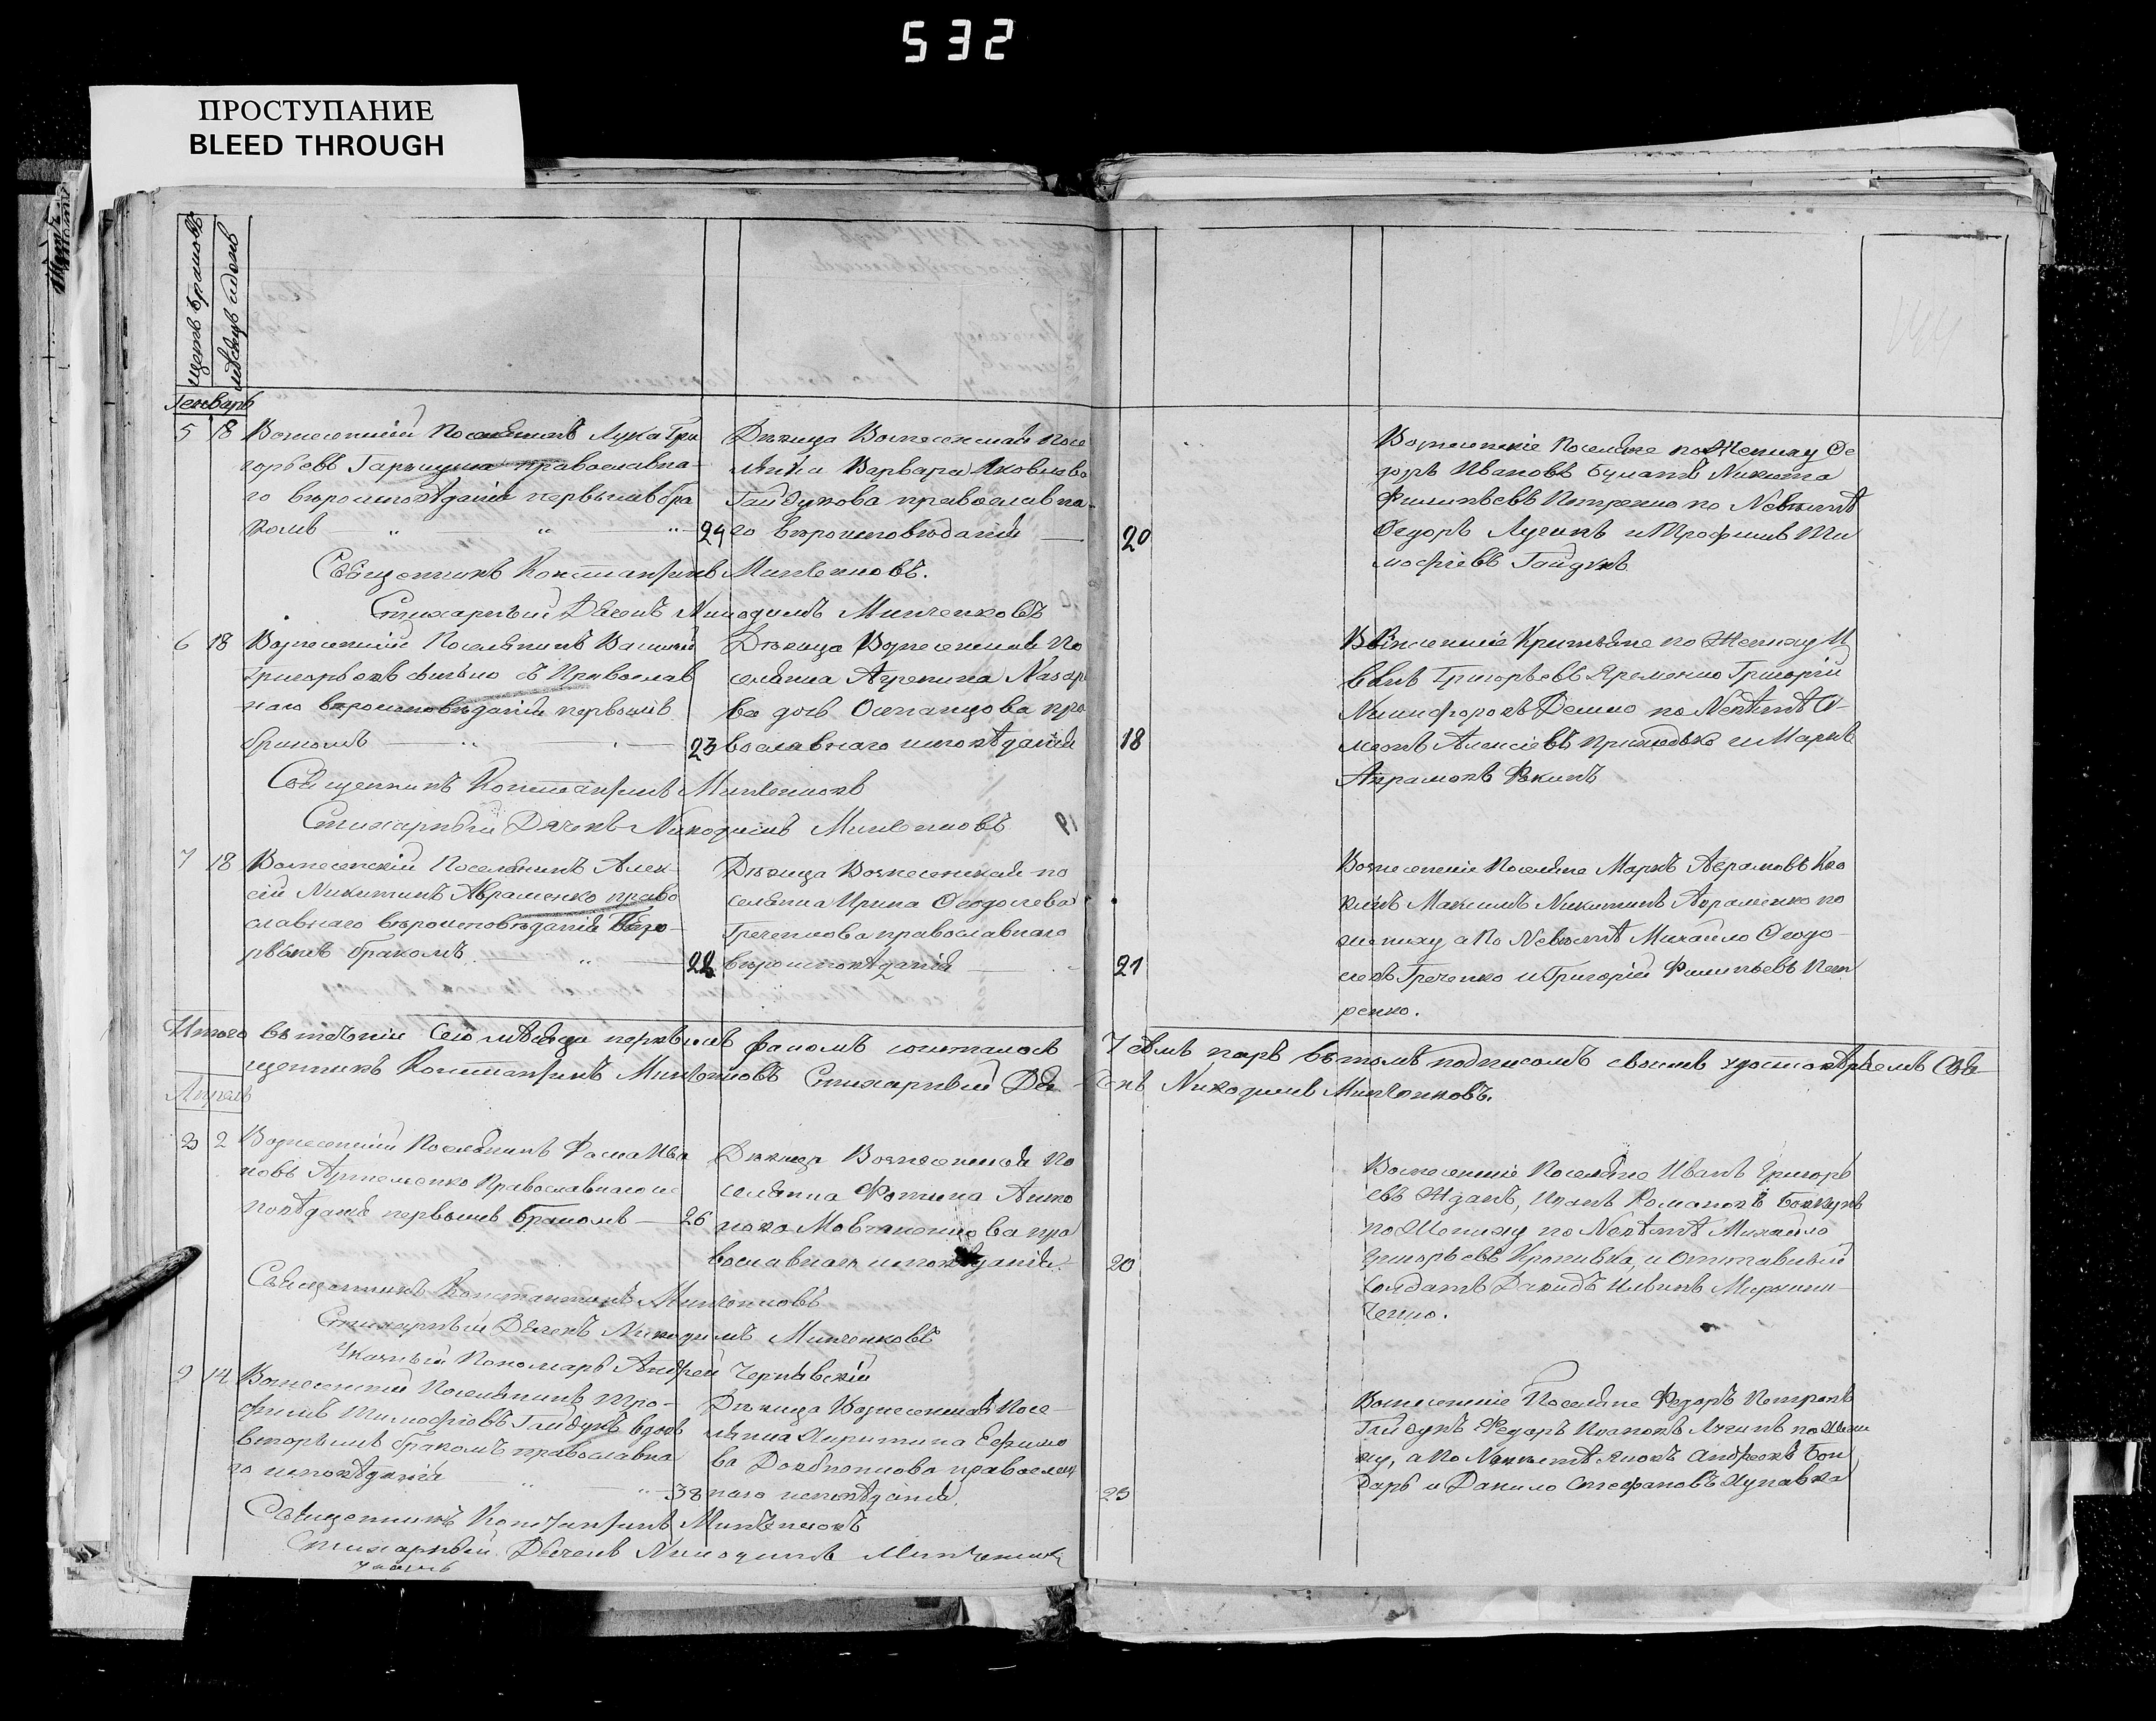 532
ПРОСТУПАНИЕ
BLEED THROUGH
щетъ браковъ
мѣсяцъ и день
Генварь
5 18 Вознесенскій Поселянинъ Лука Гри
горьевъ православна-
го вероисповѣданія первымъ бра
комъ 24
Дѣвица Вознесенская посе
лянка Варвара Яковлева
Гайдукова православна-
го вероисповѣданія
20
Вознесенскіе Поселяне по Жениху Ѳе
доръ Ивановъ Никита
Филипьевъ Петренко по Невѣстѣ
Ѳедоръ Лучинъ и Трофимъ Ти
мофѣевъ Гайдукъ
Священникъ Константинъ Минченковъ.
Стихарный Дячекъ Никодимъ Минченковъ
6 18 Вознесенскій Поселянинъ Василій
Григорьевъ Православ
наго вероисповѣданія первымъ
бракомъ 23
Дѣвица Вознесенская По
селянка Агрепина Назар
ва дочь пра
вославнаго исповѣданія
18
Вознесенскіе по Жениху И
ванъ Григорьевъ Яременко Григорій
Никифоровъ по Невѣстѣ
Алексіевъ и Марко
Аврамовъ
Священникъ Константинъ Минченковъ
Стихарный Дячекъ Никодимъ Минченковъ
7 18 Вознесенскій Поселянинъ Алек-
сій Никитинъ Авраменко право
славнаго вероисповѣданія Пер-
вымъ бракомъ 22
Дѣвица Вознесенская по
селянка Ирина Ѳеодосіева
Греченкова православнаго
вероисповѣданія
21
Вознесенскіе Поселяне Марко Аврамовъ
Максимъ Никитинъ Авраменко по
жениху а По Невѣстѣ Михайло Ѳеодо-
сіевъ Греченко и Григорій Филипьевъ Пет
ренко.
Итого въ теченіи сего мѣсяца первымъ бракомъ сочеталось 7 семь паръ въ томъ подписомъ своимъ удостовѣряемъ Свя
щенникъ Константинъ Минченковъ Стихарный Дя-чекъ Никодимъ Минченковъ.
Апрель
2 Вознесенскій Поселянинъ Фома Ива
новъ Артеменко Православнаго ис
повѣданія первымъ бракомъ 26
Дѣвица Вознесенская По
селянка Фотина Анто
нова пра
вославнаго исповѣданія.
20
Вознесенскіе Поселяне Иванъ Григорь
евъ Жданъ, Иванъ Романовъ
по Жениху по Невѣстѣ Михайло
Григорьевъ Кропивка, и Отставной
Солдатъ Давидъ
ченко.
Священникъ Константинъ Минченковъ
Стихарный Дячекъ Никодимъ Минченковъ
Указный Пономарь Андрей Чернявскій
9 14 Вознесенскій Поселянинъ Тро-
фимъ Тимофѣевъ Гайдукъ вдовъ
вторымъ бракомъ православна
го исповѣданія 38
Дѣвица Вознесенская Посе-
лянка Ефимо
ва православ
наго исповѣданія.
23
Вознесенскіе Поселяне Ѳедоръ Петровъ
Гайдукъ Ѳедоръ Ивановъ Лучинъ по Жени
ху, а По Невѣстѣ Яковъ Андреевъ Бон
дарь и Данило Стефановъ
Священникъ Константинъ Минченковъ
Стихарный Дячекъ Никодимъ Минченковъ